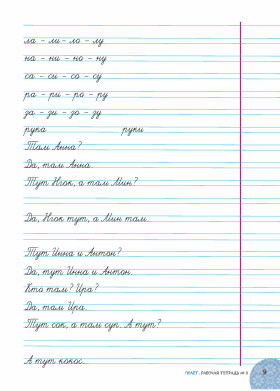 ла - ли - ло - лу
на - ни - но - ну
са - сы - со - су
ра - ри - ро - ру
за - зи - зо - зу
рука руки
Там Анна?
Да, там Анна.
Тут Нгок, а там Мин?
Да, Нгок тут, а Мин там.
Тут Инна и Антон?
Да, тут Инна и Антон.
Кто там? Ира?
Да, там Ира.
Тут сок, а там суп. А тут?
А тут кокос.
РАБОЧАЯ ТЕТРАДЬ № 3 9